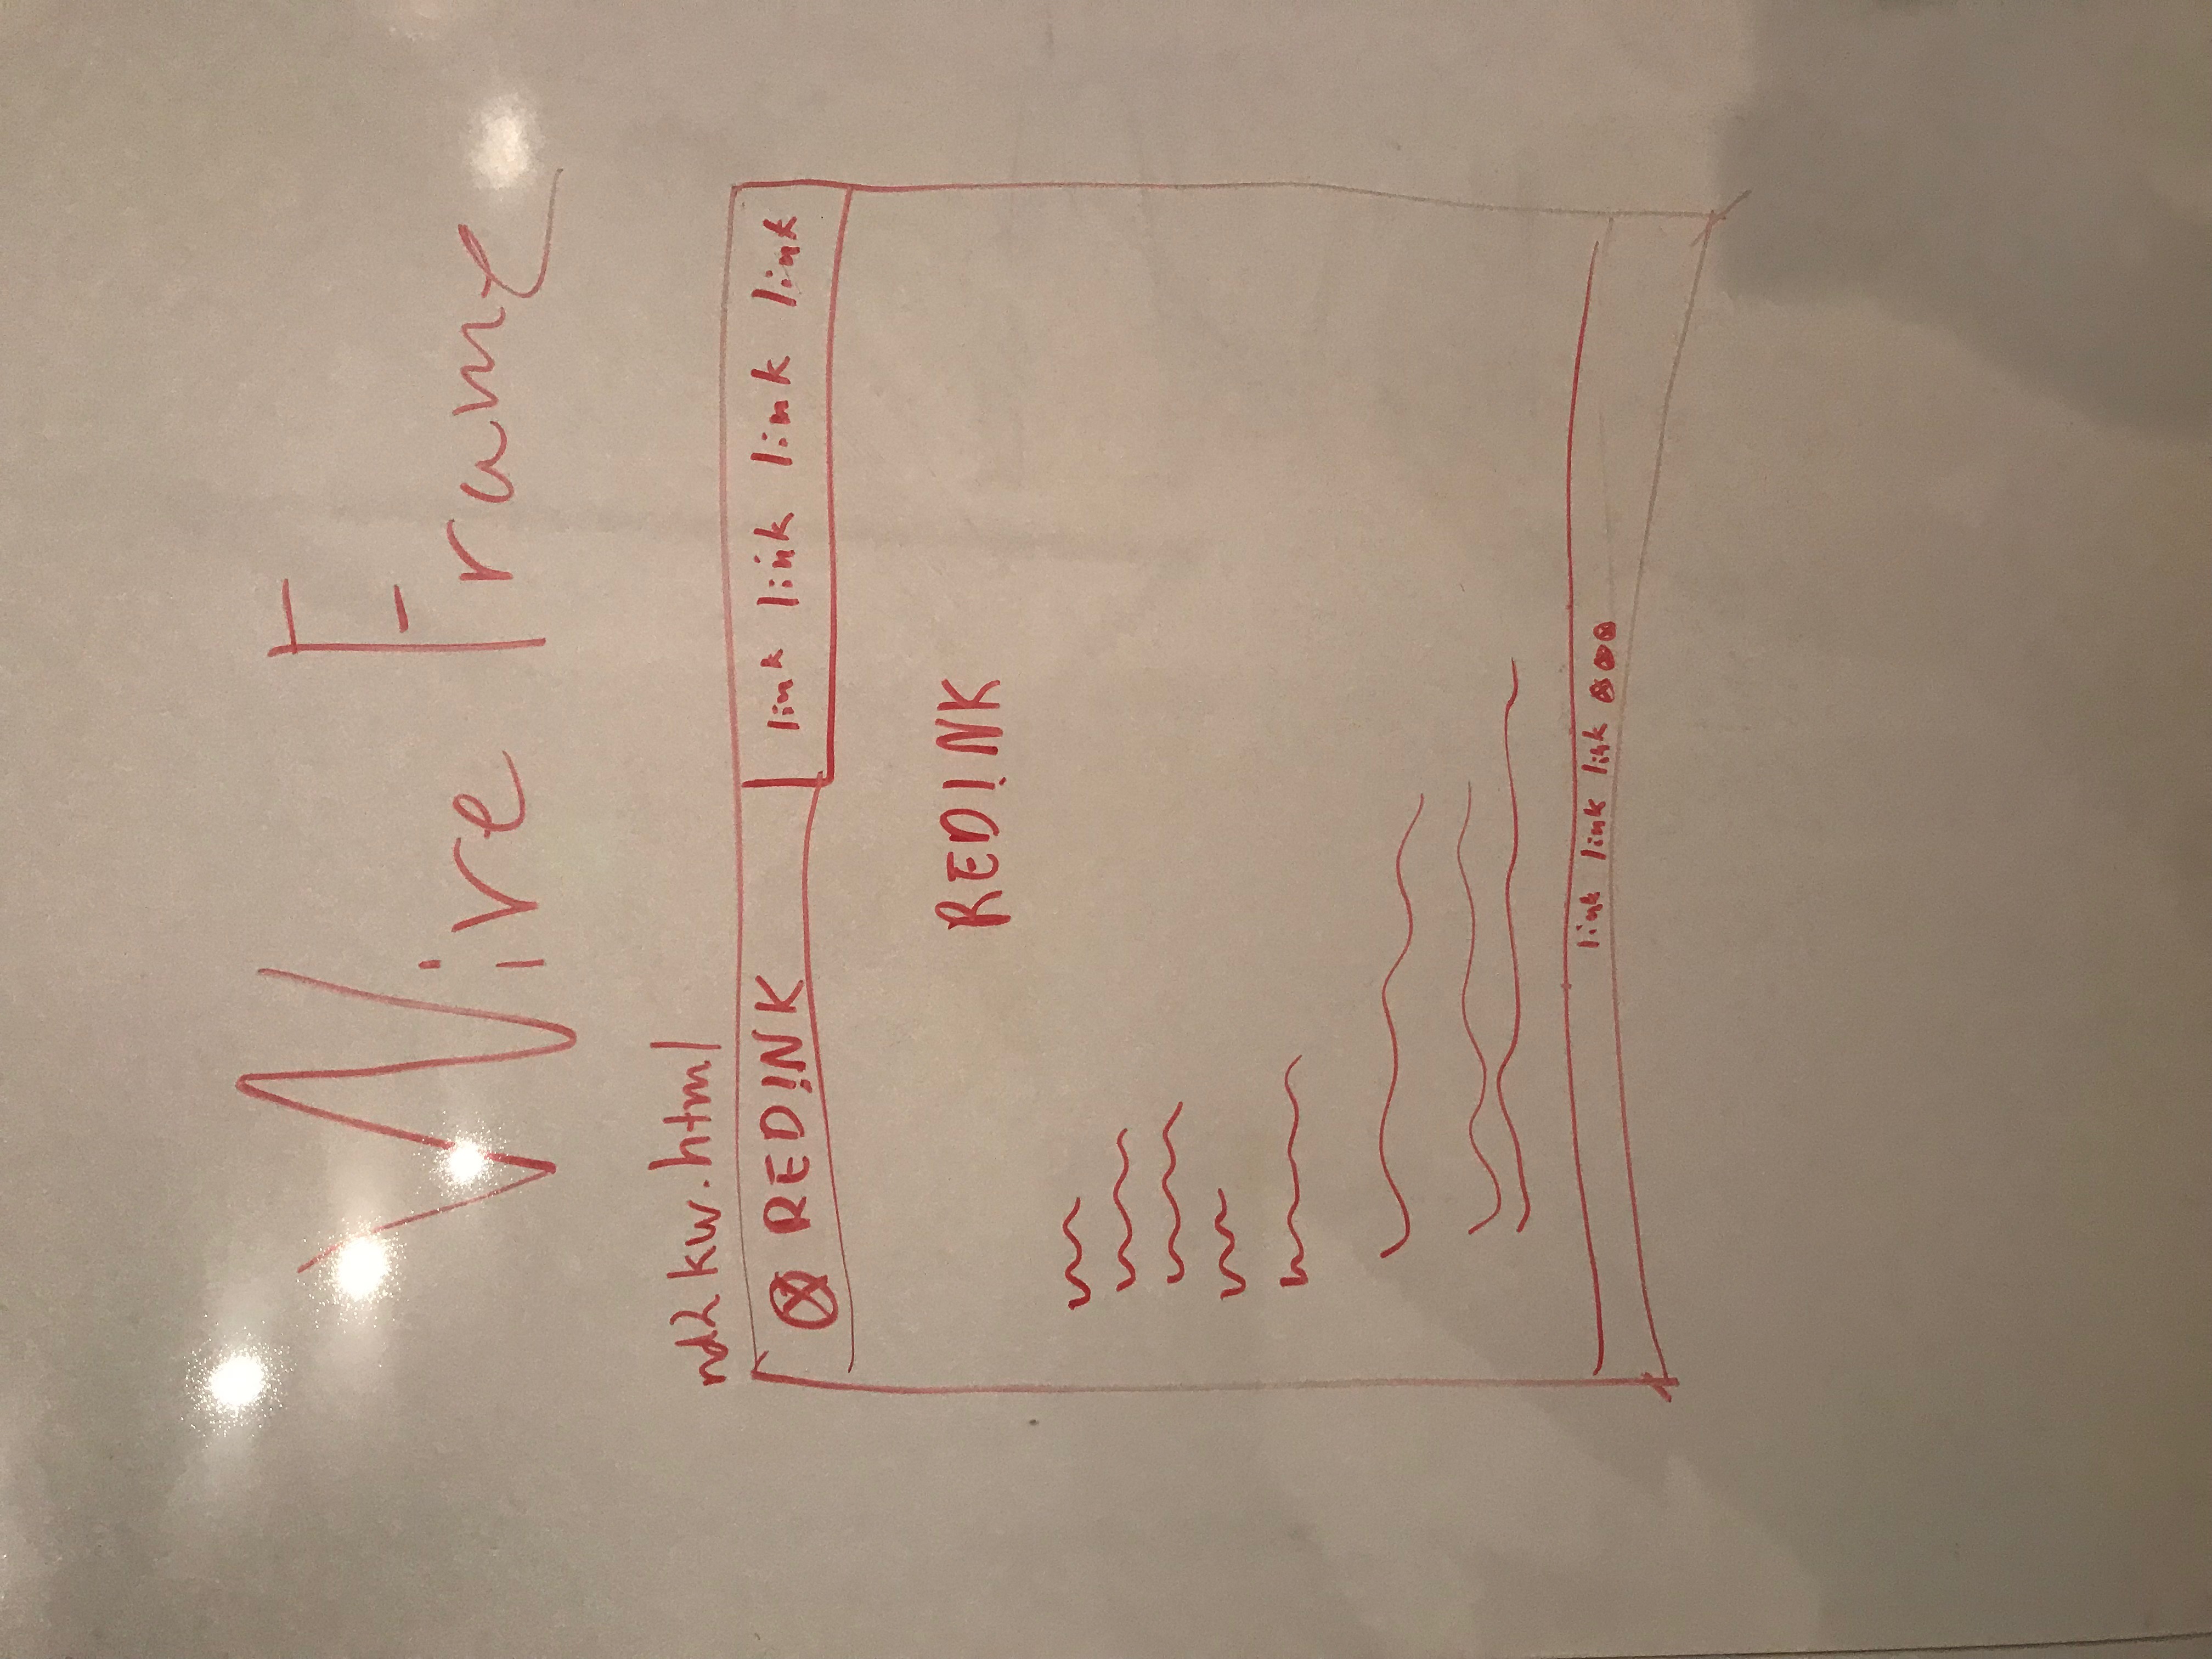 Wire Frame
nd2kw.html
RED!NK link link link link
RED!NK
link link link